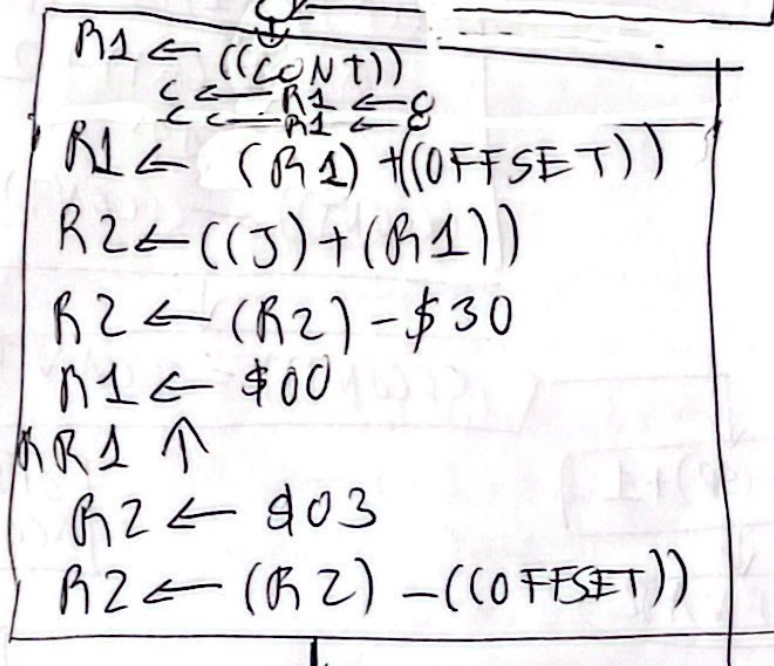 R1 ← ((CONT))
C ← R1 ← 0
C ← R1 ← 0
R1 ← (R1) + ((OFFSET))
R2 ← ((J) + (R1))
R2 ← (R2) - $30
R1 ← $00
RR1 ↑
R2 ← $03
R2 ← (R2) - ((OFFSET))